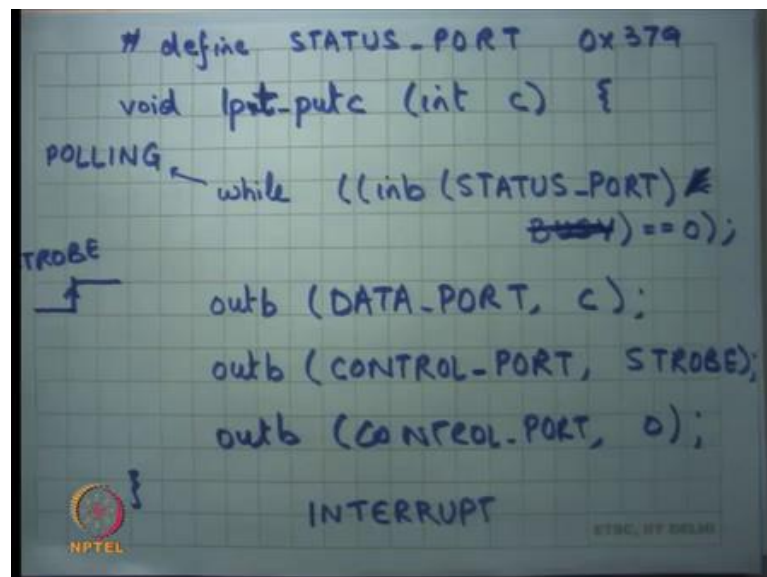 # define STATUS_PORT 0x379
void lpt_putc (int c) {
POLLING
while ((inb (STATUS_PORT)
BUSY) == 0);
TROBE
outb (DATA_PORT, c);
outb (CONTROL_PORT, STROBE);
outb (CONTROL_PORT, 0);
}
INTERRUPT
NPTEL
ETSC, IIT DELHI